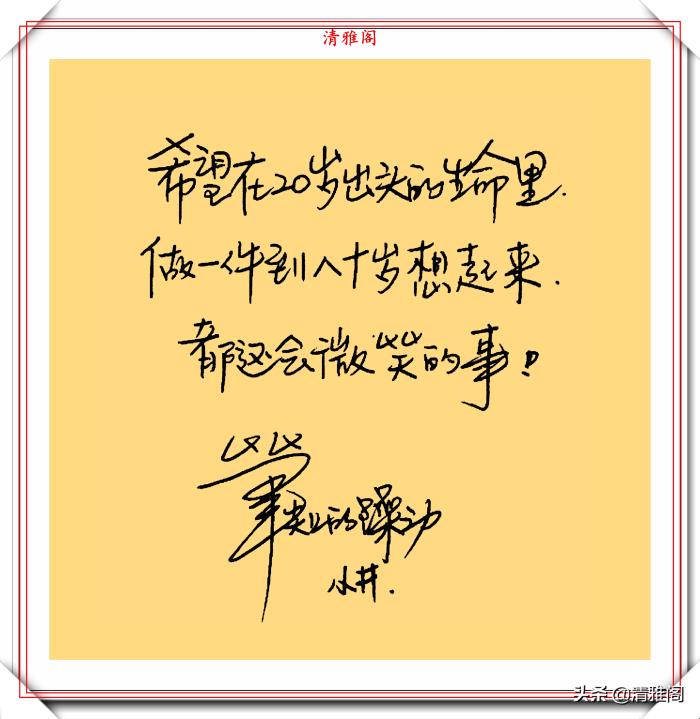 清雅阁
希望在20岁出头的生命里.
做一件到八十岁想起来.
都还会微笑的事!
的躁动
小井.
头条 @清雅阁